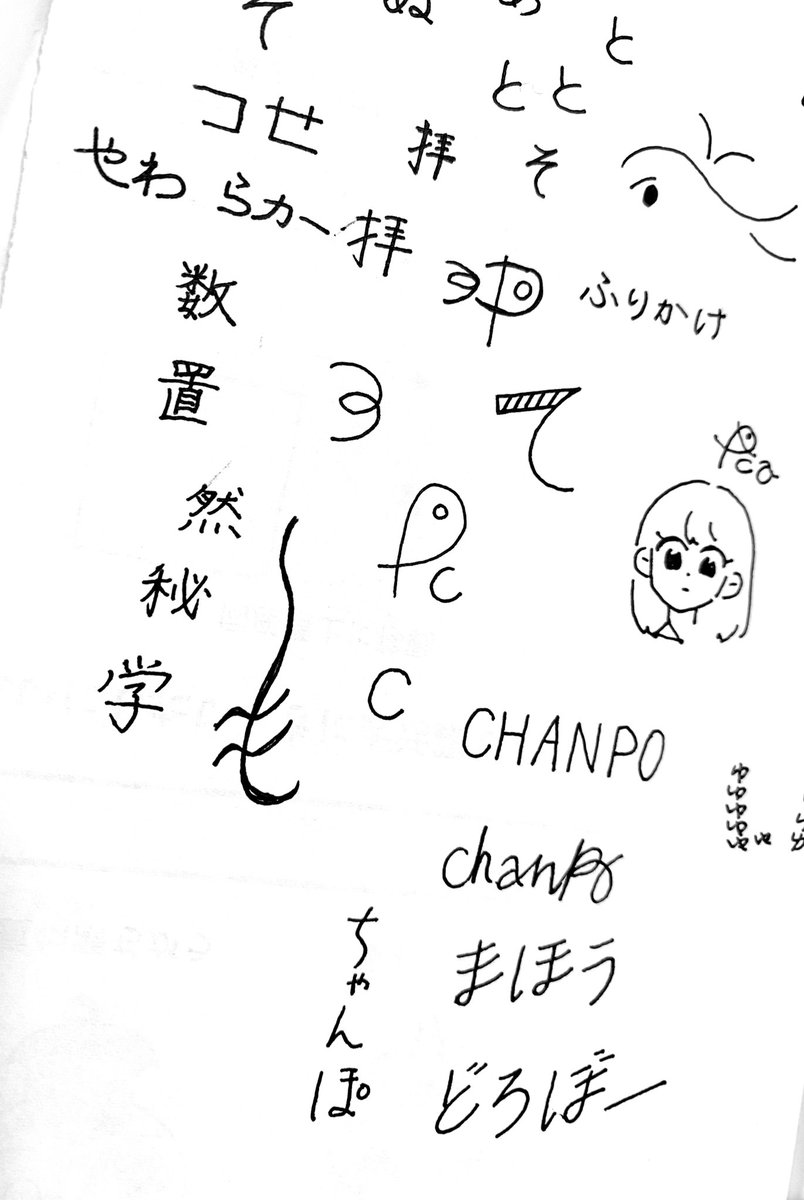 そ ぬ
と
とと
コせ 拝 そ
やわらカー拝
ふりかけ
数
置
然
秘
学
も
て
C
C
CHANPO
chanpo
まほう
どろぼー
ちゃんぽ